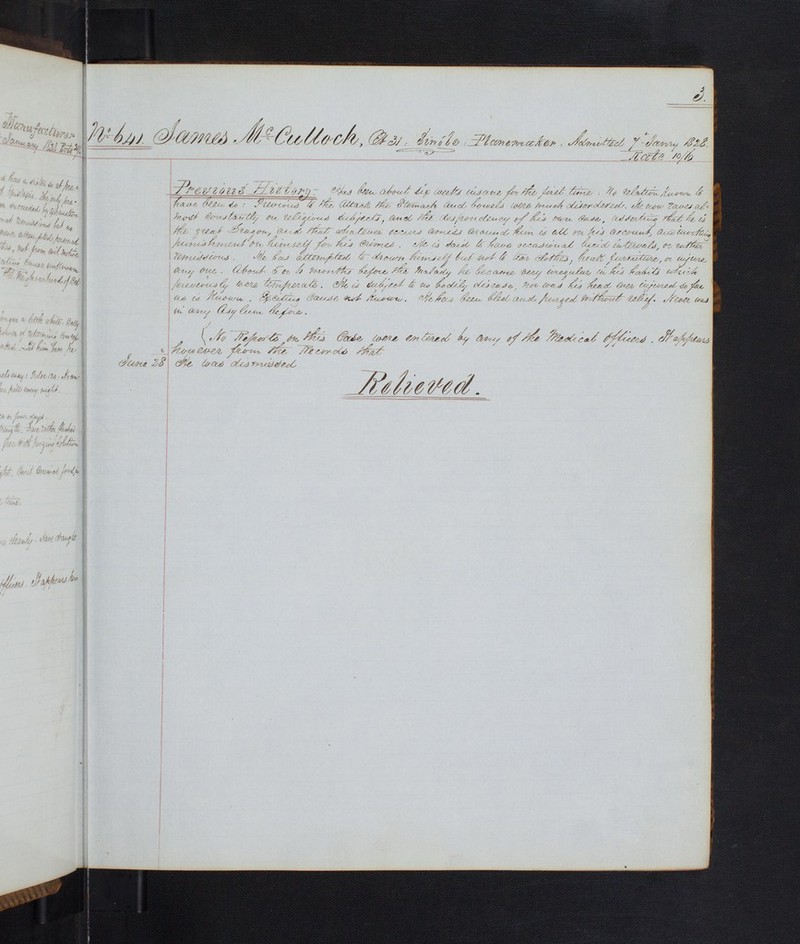 3.
No. 641. James McCulloch, Æt 31. Single. Planemaker. Admitted 7th Janry 1828.
Rate 10/6
Previous History - Has been about six weeks insane for the first time. No relation known to
have been so. Previous to the attack the Stomach and bowels were much disordered. He now raves al-
most constantly on religious subjects, and the despondency of his own case, asserting that he is
the great Dragon, and that whatever occurs amiss around him is all on his account, and
punishment on himself for his crimes. He is said to have occasional lucid intervals, or rather
remissions. He has attempted to drown himself but not to tear clothes, break furniture, or injure
any one. About 5 or 6 months before the malady he became very irregular in his habits which
previously were temperate. He is subject to no bodily disease, nor was his head ever injured so far
as is known. Exciting cause not known. He has been bled and purged without relief. Never was
in any Asylum before.
No Reports on this Case were entered by any of the Medical Officers. It appears
however from the Records that
June 28 He was dismissed
Relieved.